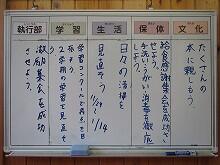 執行部
学習
生活
保体
文化
たくさんの
本に親しもう。
給食感謝集会を成功さ
せよう。
手洗い・うがい・消毒を徹底
しよう。
日々の清掃を
見直そう
11/29～1/14
学習コンクールで
2学期の学習を見直そ
う。
激励集会を成功
させよう。